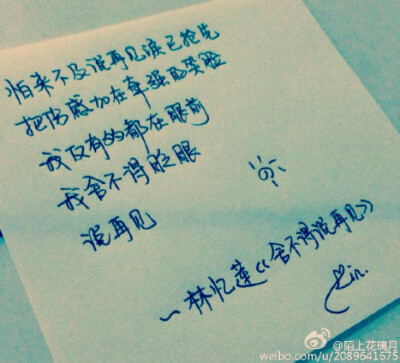 怕来不及说再见泪已抢先
把伤感加在牵强的笑脸
我仅有的都在眼前
我舍不得眨眼
说再见
—林忆莲《舍不得说再见》
@陌上花璃月
weibo.com/u/2089641675